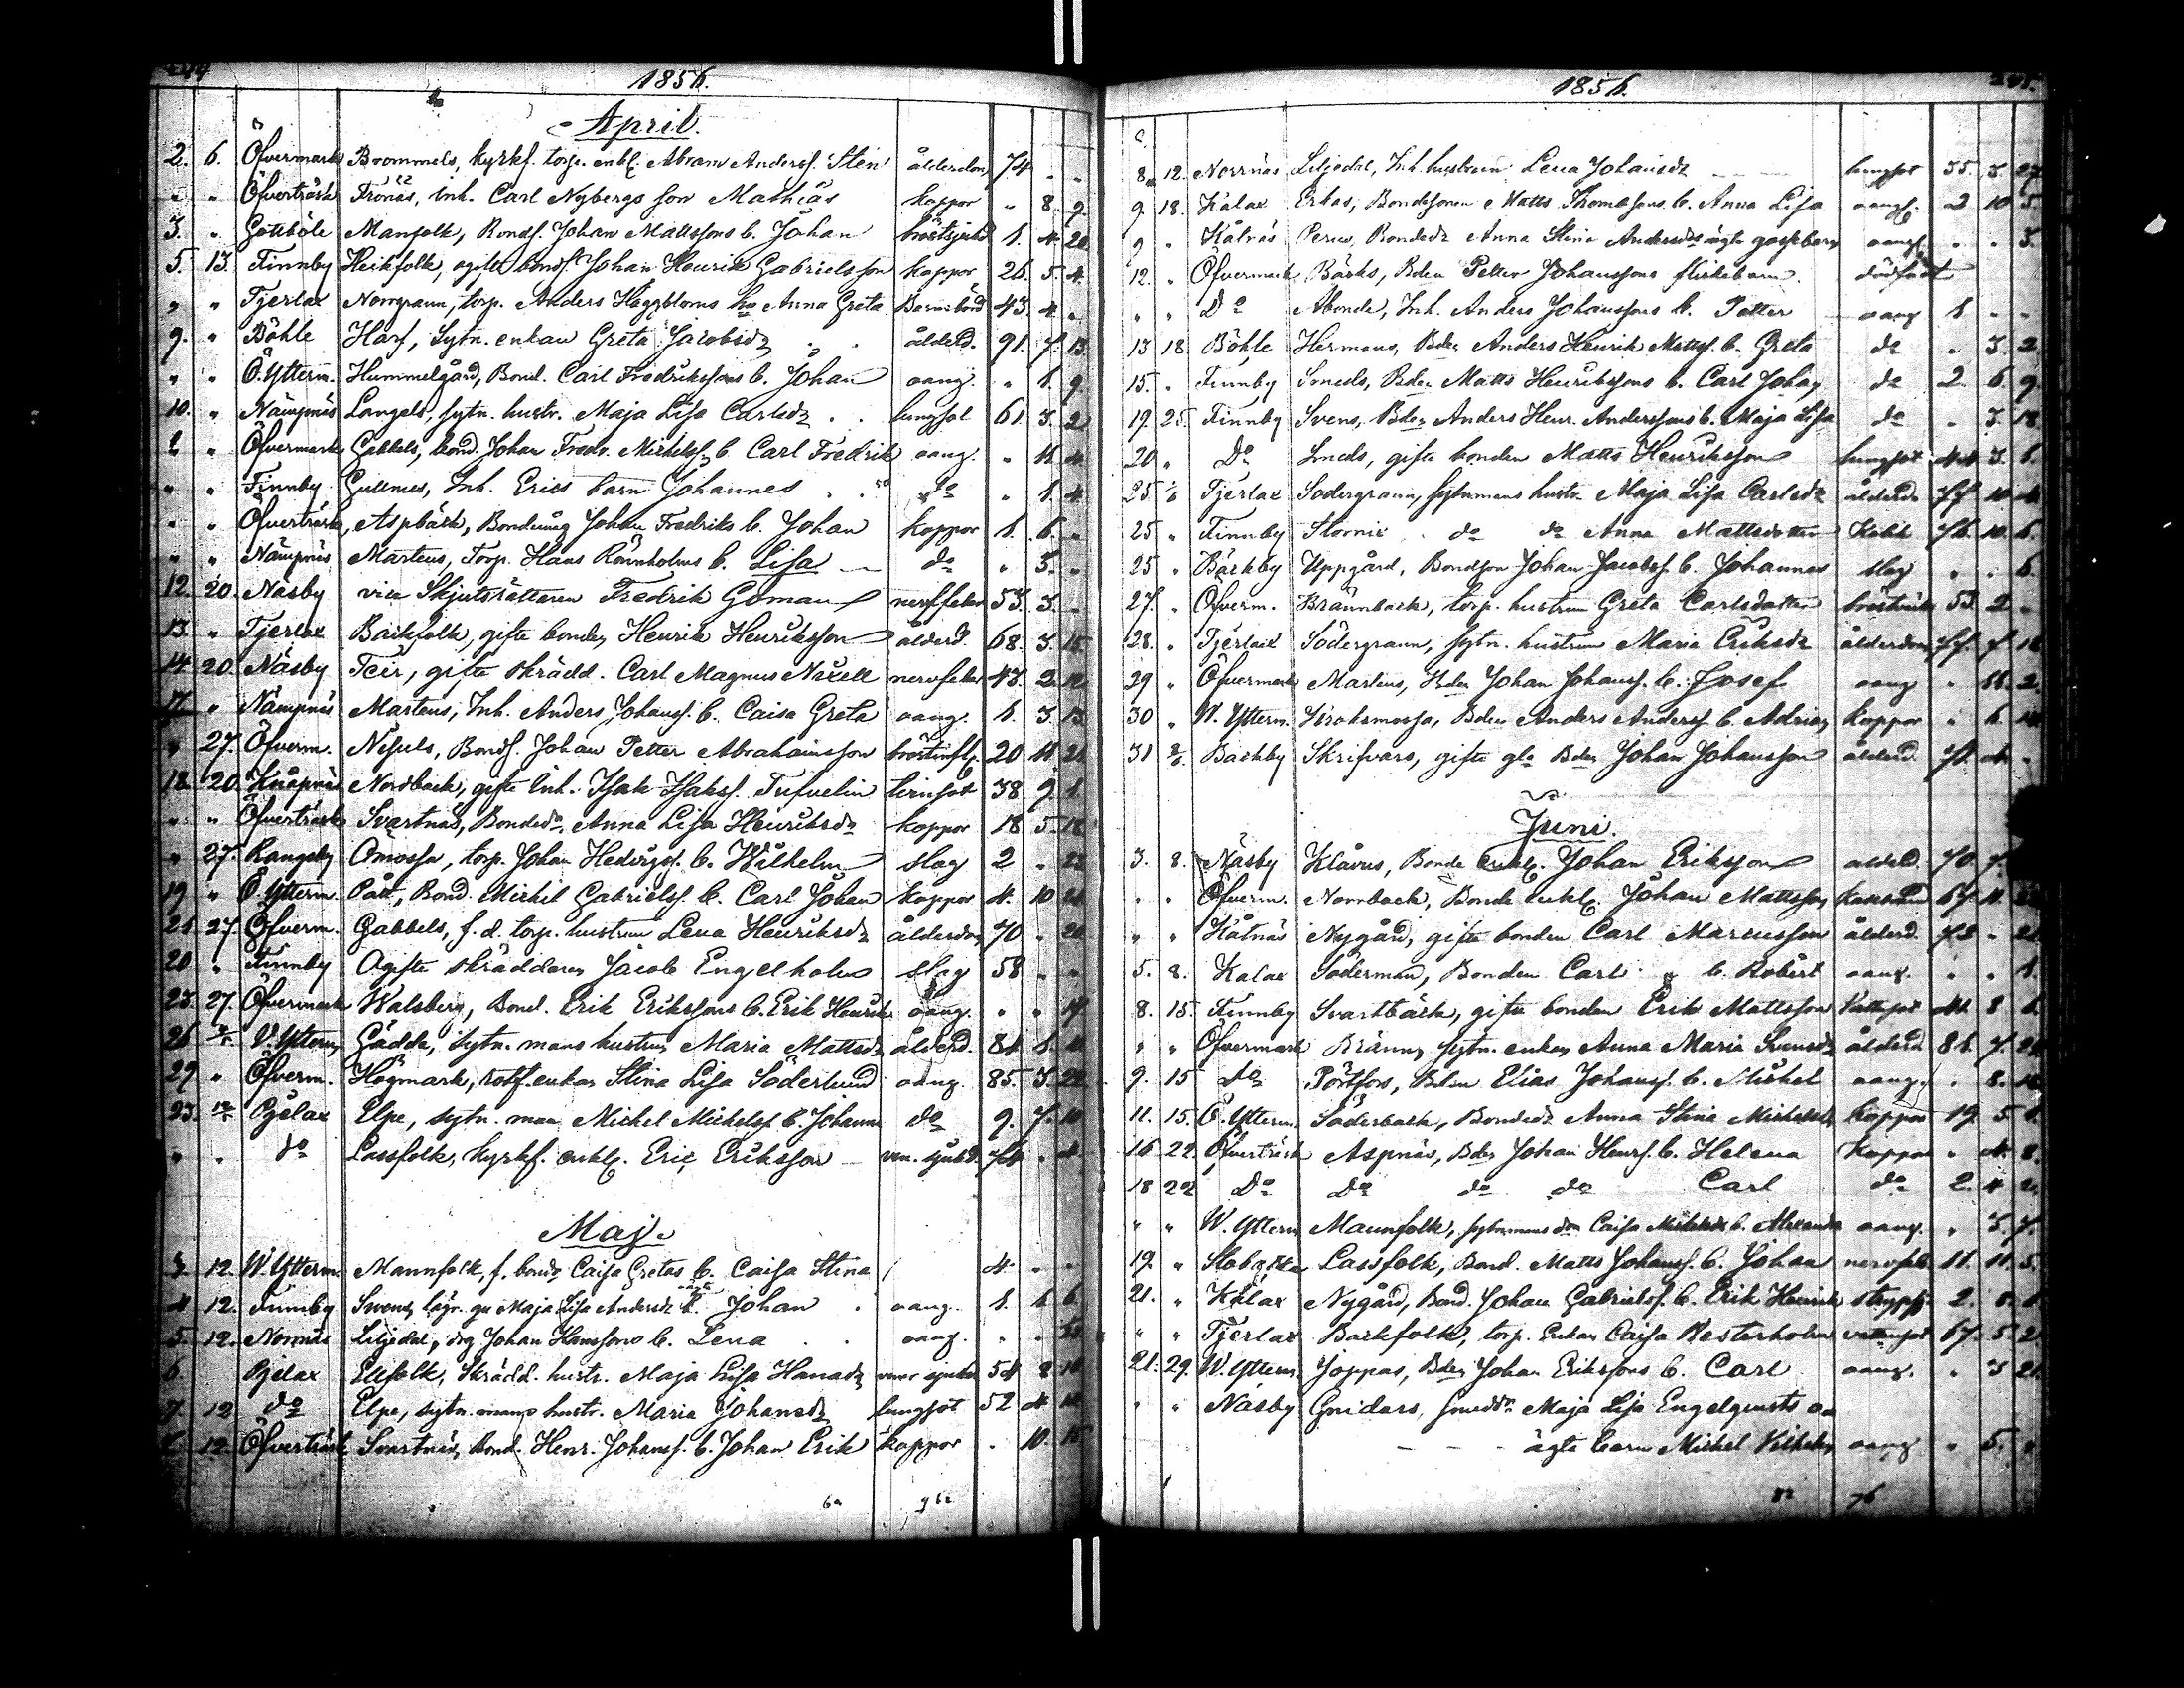 244
1856.
April.
2. 6. Öfvermark Brommels, kyrkf. torp. enkl. Abram Anderss. Sten ålderdom 74 - -
" " Öfverträsk Tronäs, Inh. Carl Nybergs son Mathias koppor " 8. 9.
3. " Gottböle Manfolk, Bonds. Johan Mattssons b. Johan bröstsjukd 1. 4. 20
5. 13. Finnby Heikfolk, ogifte bonds. Johan Henrik Gabrielsson koppor 26. 5. 4.
" " Tjerlax Norrgrann, torp. Anders Häggbloms ha Anna Greta Barnsbörd 43. 4. "
9. " Böhle Harf, Sytn. enkan Greta Jacobsdr ålderd. 91. 7. 13.
" " Ö. Ytterm. Hummelgård, Bond. Carl Fredrikssons b. Johan oang. " 1. 9.
10. " Nämpnäs Langels, sytn. hustr. Maja Lisa Carlsdr lungsot 61. 3. 2
" " Öfvermark Gabbels, bond. Johan Fredr. Michelss. b. Carl Fredrik oang. " 11. 4.
" " Finnby Gullmes, Inh. Erics barn Johannes do " 1. 4.
" " Öfverträsk, Aspbäck, Bondemåg Johan Fredriks b. Johan koppor 1. 6. "
" " Nämpnäs Martens, Torp. Hans Rönnholms b. Lisa do " 3. "
12. 20. Näsby vice Skjutsrättaren Fredrik Goman nervfeber 53. 3. -
13. " Tjerlax Backfolk, gifte bonden Henrik Henriksson ålderd. 68. 3. 15.
14. 20. Näsby Teir, gifte skrädd. Carl Magnus Nixell nervfeber 43. 2. 12.
17. " Nämpnäs Martens, Inh. Anders Johanss. b. Caisa Greta oang. 1. 3. 13.
" 27. Öfverm. Nissuls, Bonds. Johan Petter Abrahamsson bröstinfl. 20 11. 21
18. 20. Knåpnäs Nordback, gifte Inh. Isak Isakss. Tufvelin lernsot 38 9. 1
" " Öfverträsk Svartnäs, Bondedr. Anna Lisa Henriksdr koppor 18 5. 18
" 27. Rangsby Åmossa, torp. Johan Hedbergs. b. Wilhelm slag 2 " 23
19 " Ö. Ytterm. Pått, Bond. Michel Gabrielss. b. Carl Johan koppor 4. 10 21
21 27. Öfverm. Gabbels, f. d. torp. hustrun Lena Henriksdr ålderdom 70 " 20
20 " Finnby Ogifte skräddaren Jacob Engelholm slag 58 " "
23. 27. Öfvermark Walsberg, Bond. Erik Erikssons b. Erik Henrik oang. " " 14.
26 V. Ytterm. Gädda, Sytn. mans hustru Maria Mattsdr ålderd. 81. 1.
29 " Öfverm. Högmark, rotf. enkan Stina Lisa Söderlund oang. 85. 3. 22.
23. Pjelax Elpe, sytn. man Michel Michelss. b. Johanna do 9. 7. 10
" " do Lassfolk, kyrkf. enkl. Eric Eriksson ven. sjukd. 76 " 4.
Maj.
3. 12. W. Ytterm. Mannfolk, f. bondr Caisa Gretas b. Caisa Stina 4. - -
4 12. Finnby Swens, lägr. gu Maja Lisa Andersdr b. Johan oang. 1. 1 6.
5. 12. Norrnäs Liljedal, drg Johan Hanssons b. Lena oang. " "
6. Pjelax Elfolk, Skrädd. hustr. Maja Lisa Hansdr vener sjukd 54 8 10
7. 12 do Elpe, sytn. mans hustr. Maria Johansdr lungsot 52 4
12. Öfverträsk Svartnäs, Bond. Henr. Johanss. b. Johan Erik koppor . 10. 15
1856.
8. 12. Norrnäs Liljedal, Inh. hustrun Lena Johansdr lungsot 55. 3 27
9. 18. Kalax Erkas, Bondesonen Matts Thomassons b. Anna Lisa oang. 2 10 5.
9 " Kålnäs Perus, Bondedr Anna Stina Andersdrs oägta gossebarn oang. " " 3.
12. " Öfvermark Bärhs, Bden Petter Johanssons flickebarn. dödfödt
" " Do Abonde, Inh. Anders Johanssons b. Petter oang 1 - -
13 18. Böhle Hermans, Bden Anders Henrik Mattss. b. Greta do " 3. 2
15. " Finnby Smeds, Bden Matts Henrikssons b. Carl Johan do 2. 6. 9
19. 25. Finnby Svens, Bden Anders Henr. Anderssons b. Maja Lisa do " 3. 18
20 " Do Smeds, gifte bonden Matts Henriksson lungsot 44 3. 6.
25 Tjerlax Södergrann, sytnmans hustr. Maja Lisa Carlsdr ålderd. 77 10 4
25 " Finnby Stornix do do Anna Mattsdotter 76. 10. 6.
25 " Bäckby Uppgård, Bondson Johan Jacobss. b. Johannes slag " " 6.
27. " Öfverm. Brännback, torp. hustrun Greta Carlsdotter 53. 2 -
28. " Tjerlax Södergrann, sytn. hustrun Maria Eriksdr ålderdom 77. 7 16
29 " Öfvermark Martens, Bden Johan Johanss. b. Josef oang " 11. 2.
30 " W. Ytterm. Krokmossa, Bden Anders Anderss. b. Adrian koppor " 6.
31 Backby Skrifvars, gifte gla Bden Johan Johansson ålderd.
Juni.
3. 8. Näsby Klåvus, Bonde enkl. Johan Eriksson ålderd. 70. 7.
" " Öfverm. Norrback, Bonde enkl. Johan Mattsson 67. 11.
" " Kåtnäs Nygård, gifte bonden Carl Marcusson ålderd. 73 - 21
5. 8. Kalax Söderman, Bonden Carl b. Robert oang. " " 1.
8. 15. Finnby Svartbäck, gifte bonden Erik Mattsson Vattusot 41. 8 6.
" " Öfvermark Bränns sytn. enkan Anna Maria Svensdr ålderd 81. 7. 24
9. 15 Do Pörtfors, Bden Elias Johanss. b. Michel oang. " 8. 12
11. 15. Ö. Ytterm. Söderback, Bondedr Anna Stina Michelsdr koppor 19 5 1.
16 22. Öfverträsk Aspnäs, Bden Johan Henrs. b. Helena Koppor " 4 8.
18 22 Do Do do do Carl do 2. 4 2.
" " W. Ytterm Mannfolk, sytnmans dr Caisa Michelsdr b. Alexander oang. " 3. 7.
19. " Lassfolk, Bond. Matts Johanss. b. Johan nervfeb 11. 11. 5.
21. " Kalax Nygård, Bond. Johan Gabrielss. b. Erik Henrik strypsj 2.
" " Tjerlax Backfolk, torp. Enkan Caisa Westerholm vattusot 67. 5 2
21. 29. W. Ytterm. Joppas, Bden Johan Erikssons b. Carl oang. " 3 21
" " Näsby Gnidars, smeddr. Maja Lisa Engelqvists o-
ägta barn Michel Vilhelm oang. " 5. "
76